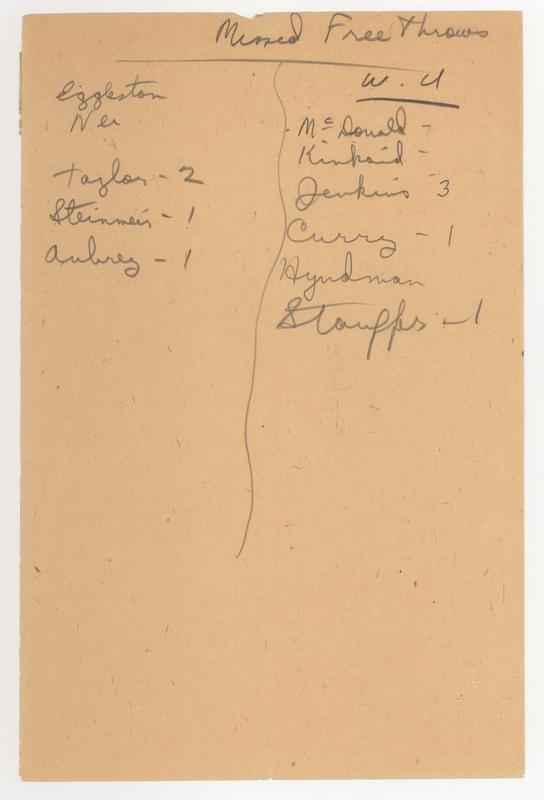 Missed Free Throws
Eggleston
Taylor - 2
Steinmeir - 1
Aubrey - 1
W. U
McDonald -
Kinkaid -
Jenkins 3
Curry - 1
Hyndman
Stauffer - 1